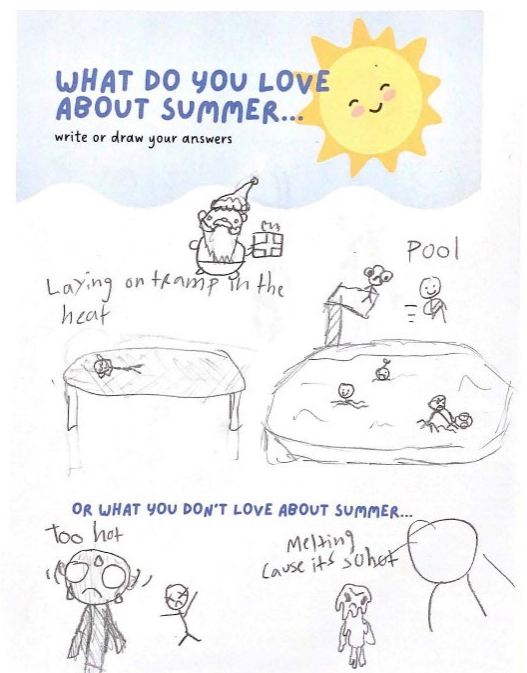 WHAT DO YOU LOVE
ABOUT SUMMER...
write or draw your answers
Pool
Laying on tramp in the
heat
OR WHAT YOU DON'T LOVE ABOUT SUMMER...
Too hot
Melting
cause its so hot